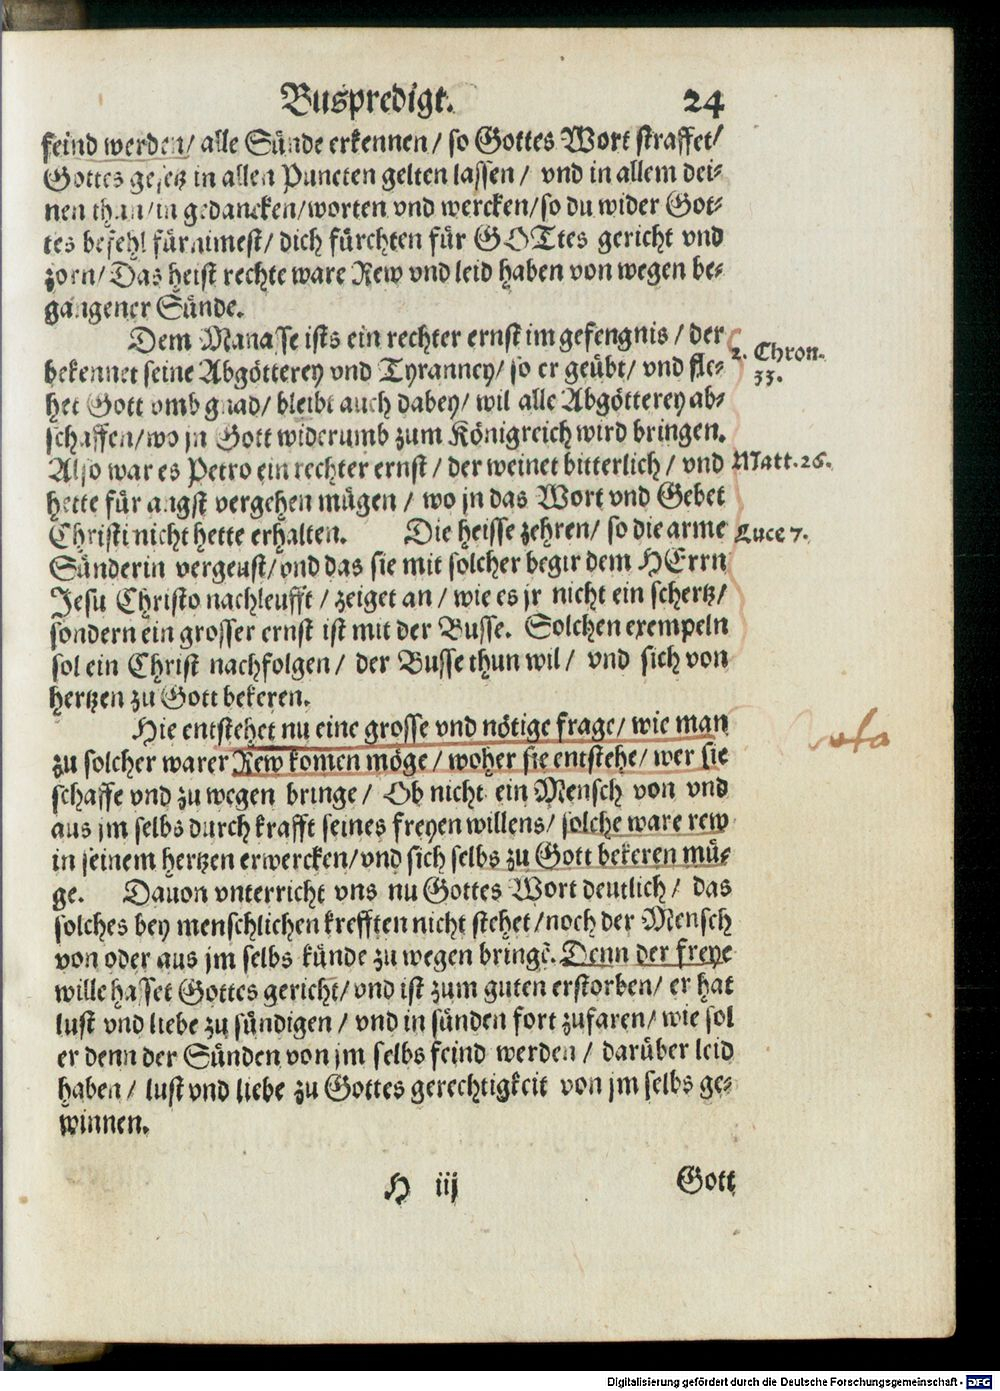 Buspredigt. 24
feind werden/ alle Sünde erkennen/ so Gottes Wort straffet/
Gottes gesetz in allen Puncten gelten lassen/ vnd in allem dei-
nen thun/ in gedancken/ worten vnd wercken/ so du wider Got-
tes befehl fürnimest/ dich fürchten für GOTtes gericht vnd
zorn/ Das heist rechte ware Rew vnd leid haben von wegen be-
gangener Sünde.
Dem Manasse ists ein rechter ernst im gefengnis/ der
bekennet seine Abgötterey vnd Tyranney/ so er geübt/ vnd fle-
het Gott vmb gnad/ bleibt auch dabey/ wil alle Abgötterey ab-
schaffen/ wo jn Gott widerumb zum Königreich wird bringen.
2. Chron.
33.
Also war es Petro ein rechter ernst/ der weinet bitterlich/ vnd
hette für angst vergehen mügen/ wo jn das Wort vnd Gebet
Matt. 26.
Christi nicht hette erhalten. Die heisse zehren/ so die arme
Sünderin vergeust/ vnd das sie mit solcher begir dem HErrn
Luce 7.
Jesu Christo nachleufft/ zeiget an/ wie es jr nicht ein schertz/
sondern ein grosser ernst ist mit der Busse. Solchen exempeln
sol ein Christ nachfolgen/ der Busse thun wil/ vnd sich von
hertzen zu Gott bekeren.
Hie entstehet nu eine grosse vnd nötige frage/ wie man
zu solcher warer Rew komen möge/ woher sie entstehe/ wer sie
schaffe vnd zu wegen bringe/ Ob nicht ein Mensch von vnd
aus jm selbs durch krafft seines freyen willens/ solche ware rew
in seinem hertzen erwercken/ vnd sich selbs zu Gott bekeren mü-
ge. Dauon vnterricht vns nu Gottes Wort deutlich/ das
solches bey menschlichen krefften nicht stehet/ noch der Mensch
von oder aus jm selbs künde zu wegen bringē. Denn der freye
wille hasset Gottes gericht/ vnd ist zum guten erstorben/ er hat
lust vnd liebe zu sündigen/ vnd in sünden fort zufaren/ wie sol
er denn der Sünden von jm selbs feind werden/ darüber leid
haben/ lust vnd liebe zu Gottes gerechtigkeit von jm selbs ge-
winnen.
H iij Gott
Nota
Digitalisierung gefördert durch die Deutsche Forschungsgemeinschaft - DFG